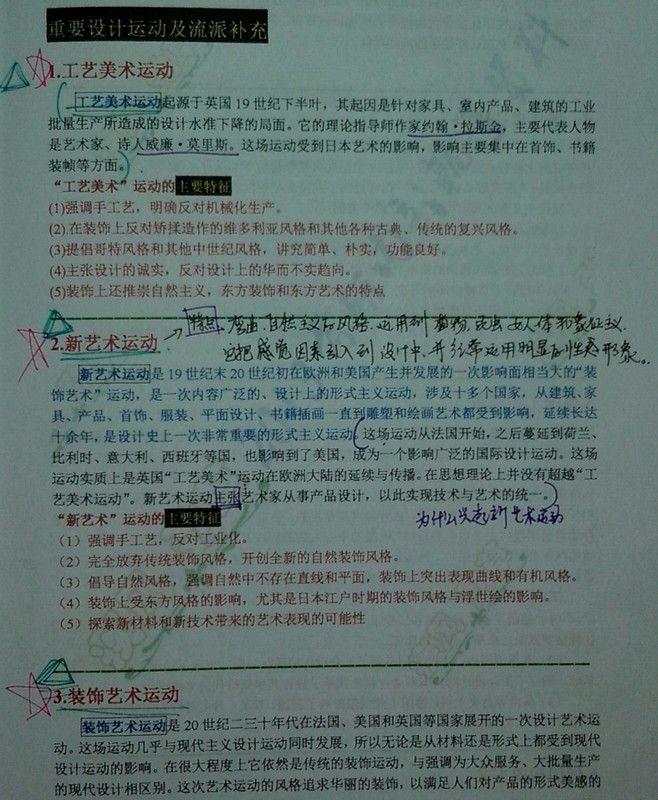 重要设计运动及流派补充
1.工艺美术运动
工艺美术运动起源于英国 19 世纪下半叶，其起因是针对家具、室内产品、建筑的工业
批量生产所造成的设计水准下降的局面。它的理论指导师作家约翰·拉斯金，主要代表人物
是艺术家、诗人威廉·莫里斯。这场运动受到日本艺术的影响，影响主要集中在首饰、书籍
装帧等方面。
“工艺美术”运动的主要特征
(1)强调手工艺，明确反对机械化生产。
(2).在装饰上反对矫揉造作的维多利亚风格和其他各种古典、传统的复兴风格。
(3)提倡哥特风格和其他中世纪风格，讲究简单、朴实，功能良好。
(4)主张设计的诚实，反对设计上的华而不实趋向。
(5)装饰上还推崇自然主义，东方装饰和东方艺术的特点
特点 弯曲.自然主义的风格.运用到植物.昆虫.女人体和象征主义.
2.新艺术运动
它把感觉因素引入到设计中.并经常运用明显的性感形象。
新艺术运动是 19 世纪末 20 世纪初在欧洲和美国产生并发展的一次影响面相当大的“装
饰艺术”运动，是一次内容广泛的、设计上的形式主义运动，涉及十多个国家，从建筑、家
具、产品、首饰、服装、平面设计、书籍插画一直到雕塑和绘画艺术都受到影响，延续长达
十余年，是设计史上一次非常重要的形式主义运动。这场运动从法国开始，之后蔓延到荷兰、
比利时、意大利、西班牙等国，也影响到了美国，成为一个影响广泛的国际设计运动。这场
运动实质上是英国“工艺美术”运动在欧洲大陆的延续与传播。在思想理论上并没有超越“工
艺美术运动”。新艺术运动主张艺术家从事产品设计，以此实现技术与艺术的统一。
“新艺术”运动的主要特征
为什么兴起新艺术运动
（1）强调手工艺，反对工业化。
（2）完全放弃传统装饰风格，开创全新的自然装饰风格。
（3）倡导自然风格，强调自然中不存在直线和平面，装饰上突出表现曲线和有机风格。
（4）装饰上受东方风格的影响，尤其是日本江户时期的装饰风格与浮世绘的影响。
（5）探索新材料和新技术带来的艺术表现的可能性
3.装饰艺术运动
装饰艺术运动是 20 世纪二三十年代在法国、美国和英国等国家展开的一次设计艺术运
动。这场运动几乎与现代主义设计运动同时发展，所以无论是从材料还是形式上都受到现代
设计运动的影响。在很大程度上它依然是传统的装饰运动，与强调为大众服务、大批量生产
的现代设计相区别。这次艺术运动的风格追求华丽的装饰，以满足人们对产品的形式美感的